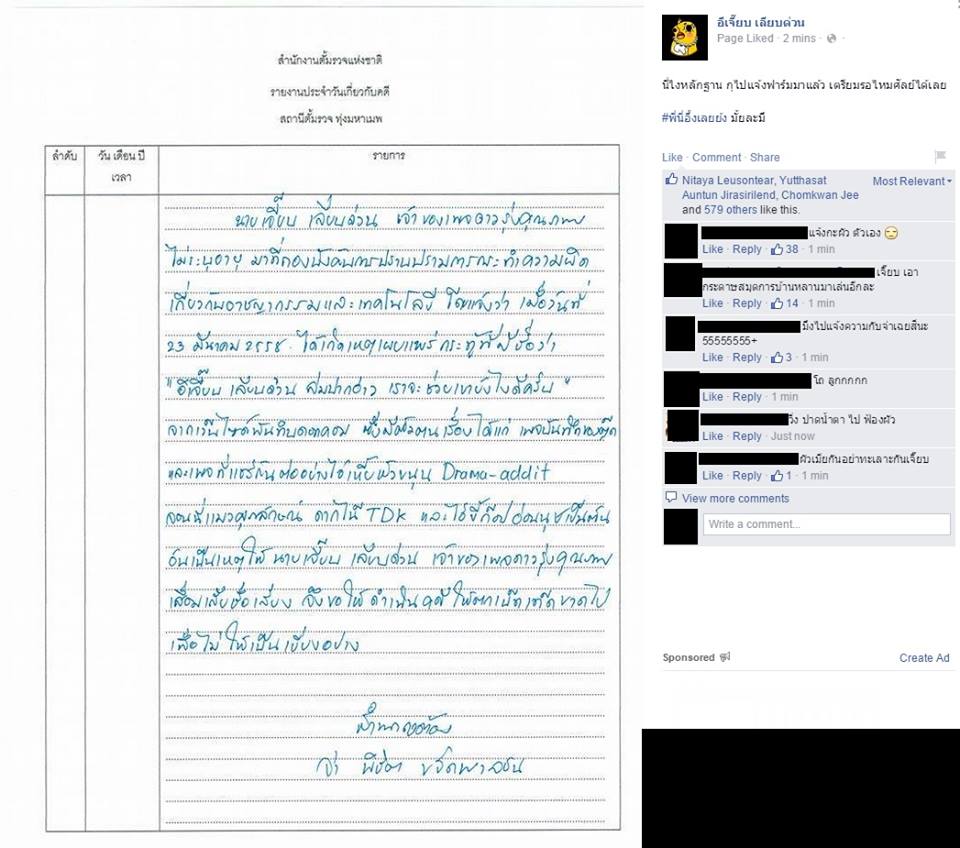 สำนักงานตั้มรวจแห่งชาติ
รายงานประจำวันเกี่ยวกับคดี
สถานีตั้มรวจ ทุ่งมหาเมพ
ลำดับ
วัน เดือน ปี
เวลา
รายการ
นายเจี๊ยบ เลียบด่วน เจ้าของเพจดาวรุ่งคุณภาพ
ไม่ระบุอายุ มาที่กองบังคับการปราบปรามการกระทำความผิด
เกี่ยวกับอาชญากรรมและเทคโนโลยี โดยแจ้งว่า เมื่อวันที่
23 มีนาคม 2558 ได้เกิดเหตุเผยแพร่กระทู้ที่มีชื่อว่า
"อีเจี๊ยบ เลียบด่วน ส้นปากฮาว เราจะช่วยเขายังไงดีครับ"
จากเว็บไซต์พันทิบดอทคอม ซึ่งมีตัวตนเรื่องได้แก่
และเพจที่แชร์กันต่ออย่าง Drama-addit
TDK และ เป็นต้น
อันเป็นเหตุให้ นายเจี๊ยบ เลียบด่วน เจ้าของเพจดาวรุ่งคุณภาพ
เสื่อมเสียชื่อเสียง จึงขอให้ดำเนินคดี
เพื่อไม่ให้เป็นเยี่ยงอย่าง
จ่า
อีเจี๊ยบ เลียบด่วน
Page Liked · 2 mins ·
นี่ไงหลักฐาน กุไปแจ้งฟาร์มมาแล้ว เตรียมรอไหมศัลย์ได้เลย
#พี่นี่อึ้งเลยยัง มั้ยละมึ
Like · Comment · Share
Nitaya Leusontear, Yutthasat
Auntun Jirasirilend, Chomkwan Jee
and 579 others like this.
Most Relevant
แจ้งกะผัว ตัวเอง
Like · Reply · 38 · 1 min
เจี๊ยบ เอา
กระดาษสมุดการบ้านหลานมาเล่นอีกละ
Like · Reply · 14 · 1 min
มึงไปแจ้งความกับจ่าเฉยสินะ
55555555+
Like · Reply · 3 · 1 min
โถ ลูกกกกก
Like · Reply · 1 min
วิ่ง ปาดน้ำตา ไป ฟ้องผัว
Like · Reply · Just now
ผัวเมียกันอย่าทะเลาะกันเจี๊ยบ
Like · Reply · 1 · 1 min
View more comments
Write a comment...
Sponsored
Create Ad